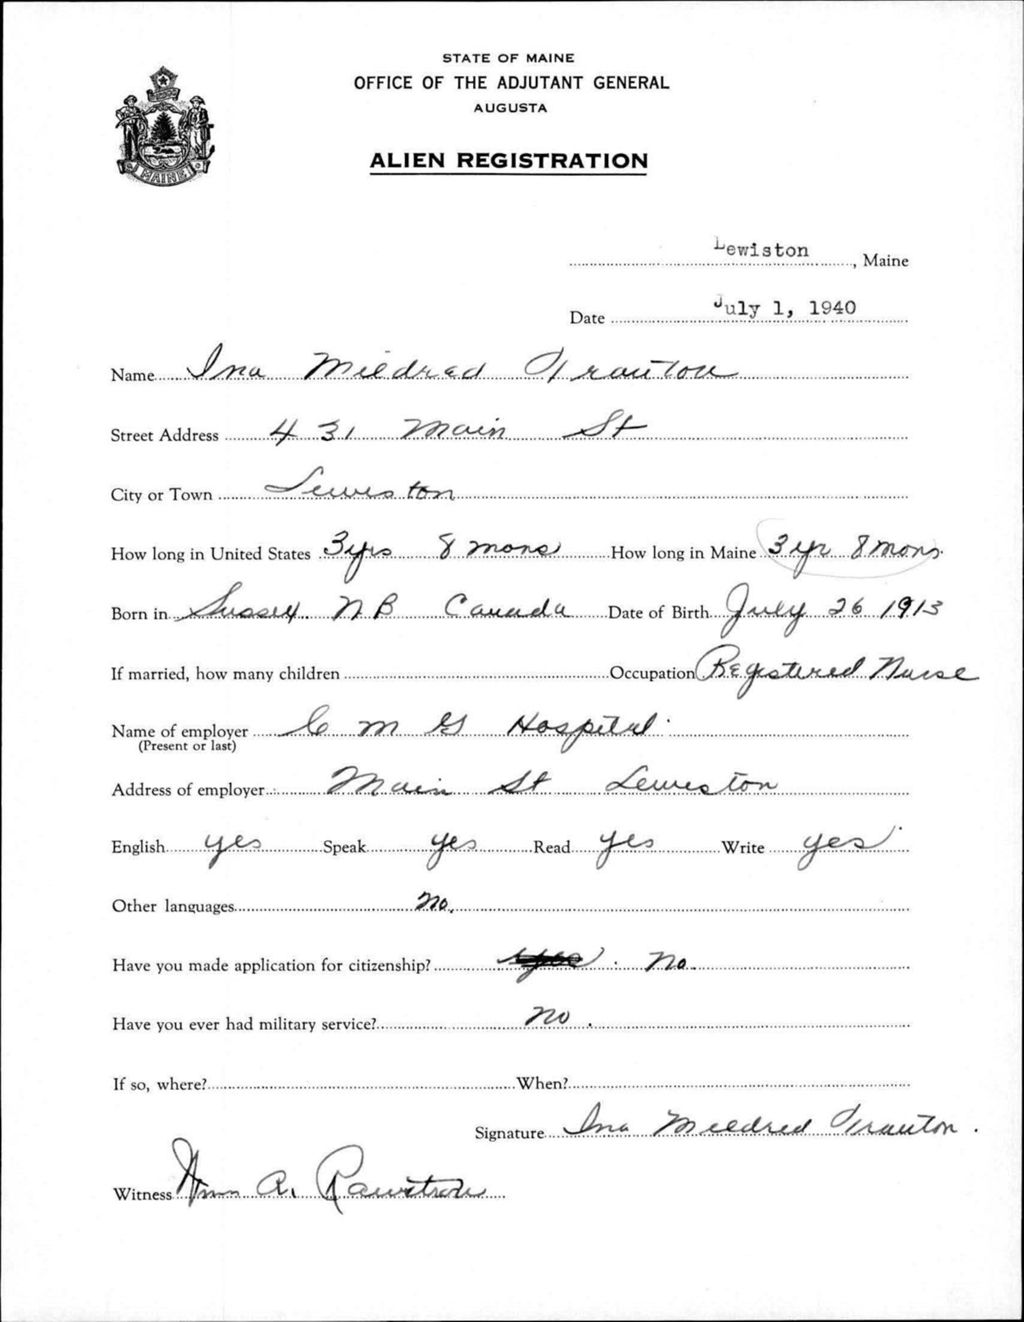 STATE OF MAINE
OFFICE OF THE ADJUTANT GENERAL
AUGUSTA
ALIEN REGISTRATION
MAINE
Lewiston, Maine
Date July 1, 1940
Name Ina Mildred
Street Address 431 Main St
City or Town Lewiston
How long in United States 3 yrs 8 mons How long in Maine 3 yr 8 mons.
Born in Sussex N B Canada Date of Birth July 26 1913
If married, how many children Occupation Registered Nurse
Name of employer C M G Hospital
(Present or last)
Address of employer Main St Lewiston
English yes Speak yes Read yes Write yes
Other languages No.
Have you made application for citizenship? yes. No.
Have you ever had military service? No.
If so, where? When?
Signature Ina Mildred
Witness Wm A.